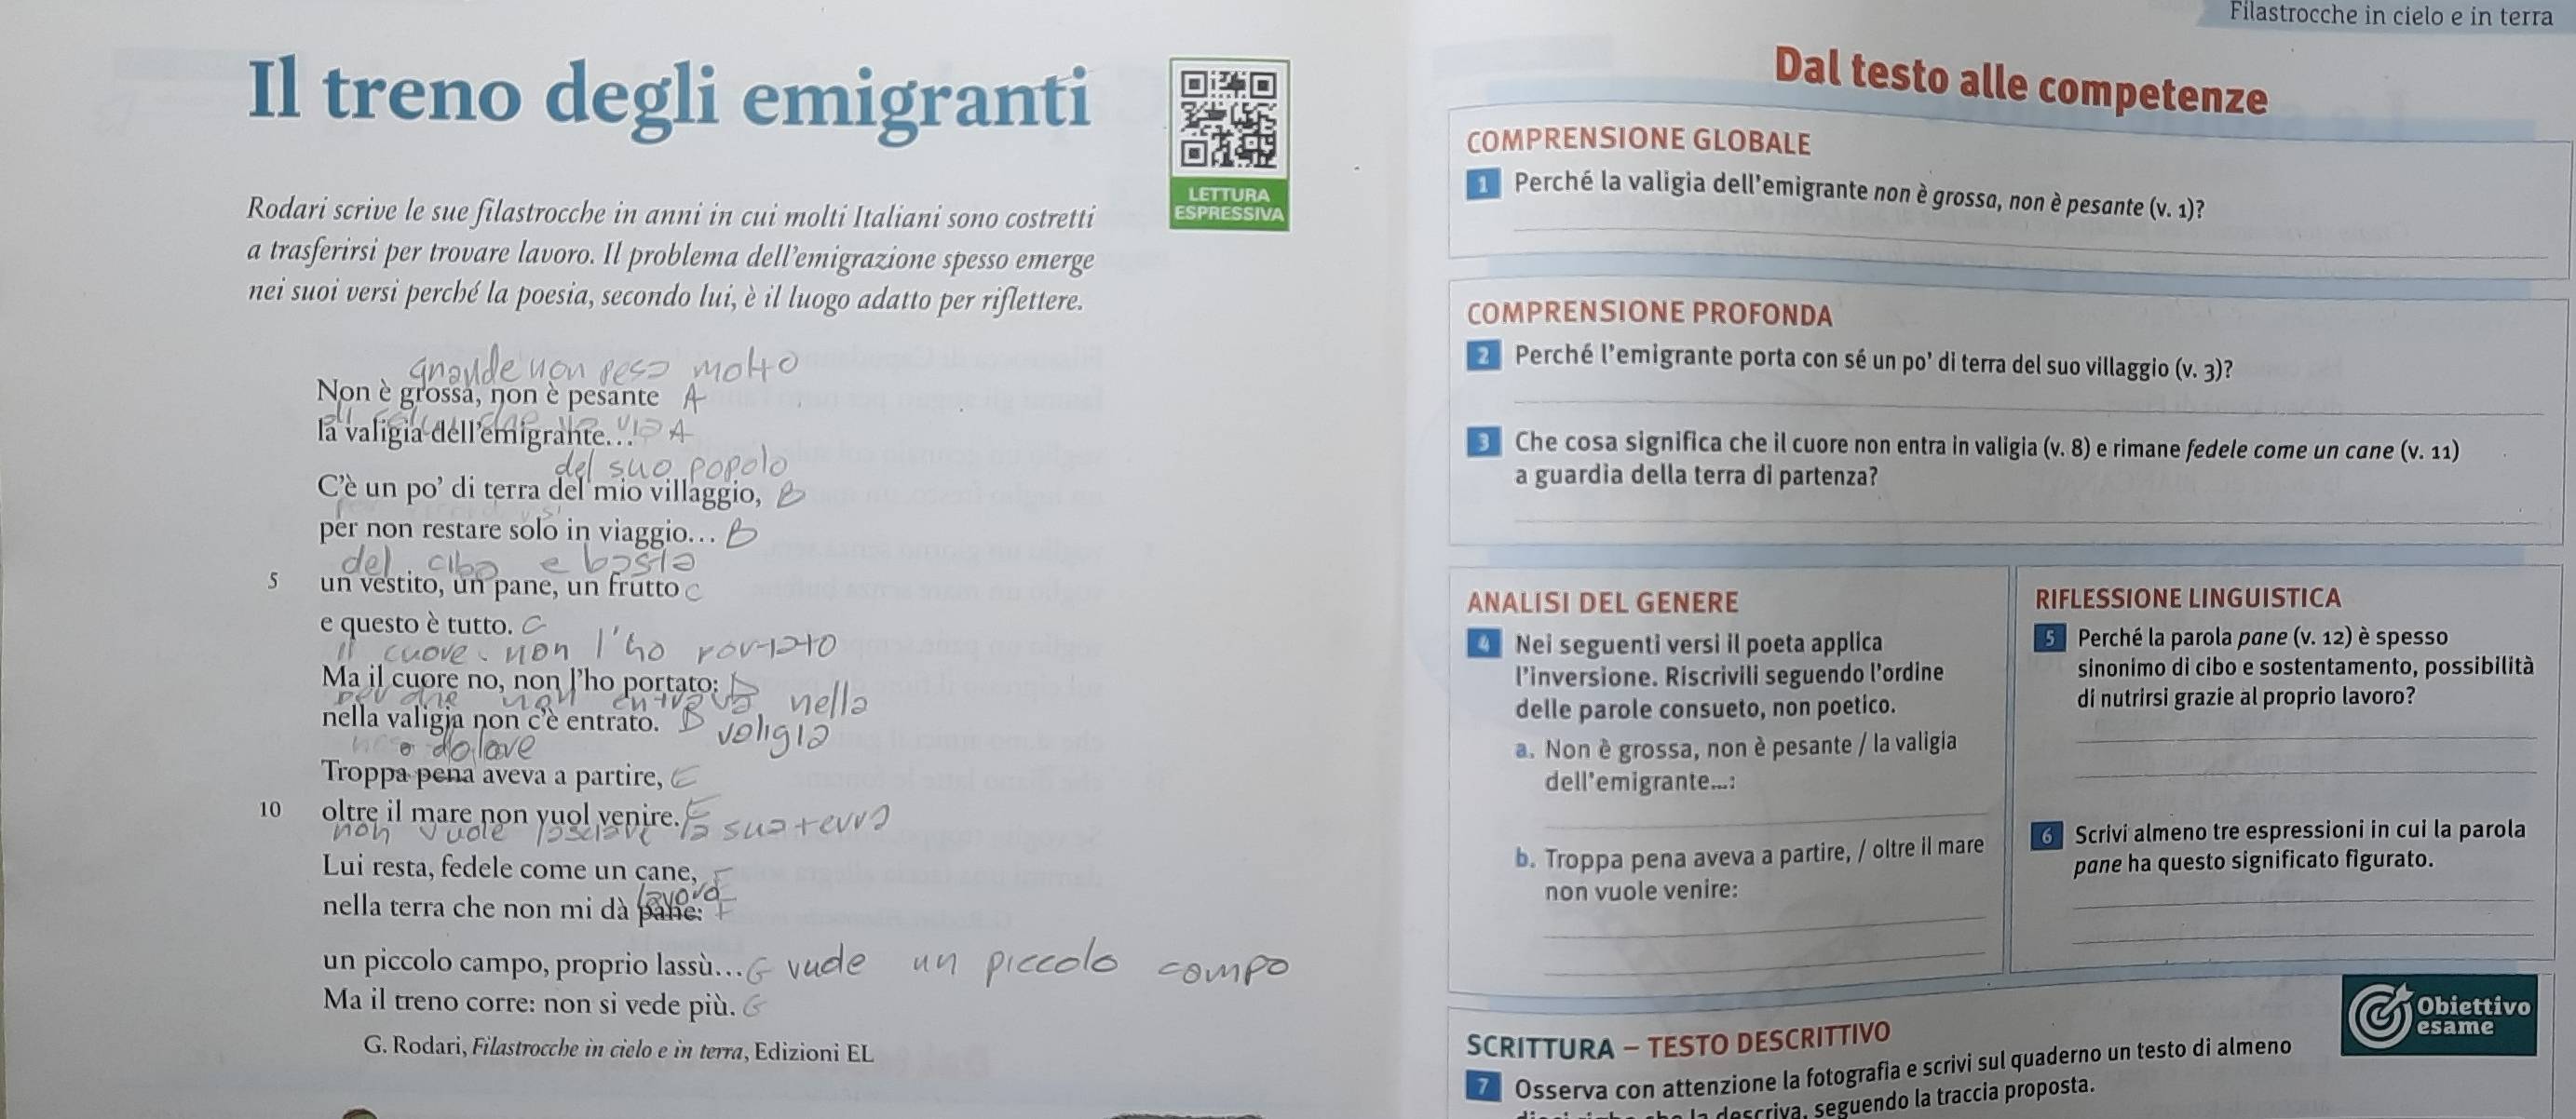 Il treno degli emigranti
LETTURA
ESPRESSIVA
Rodari scrive le sue filastrocche in anni in cui molti Italiani sono costretti
a trasferirsi per trovare lavoro. Il problema dell'emigrazione spesso emerge
nei suoi versi perché la poesia, secondo lui, è il luogo adatto per riflettere.
grande non peso molto
Non è grossa, non è pesante A
che va via
la valigia dell'emigrante... A
del suo popolo
C'è un po' di terra del mio villaggio, B
per non restare solo in viaggio... B
del cibo e basta
5 un vestito, un pane, un frutto C
e questo è tutto. C
il cuore non l'ho
Ma il cuore no, non l'ho portato: D
perche non entrava nella
nella valigia non c'è entrato. D valigia
dolore
Troppa pena aveva a partire, E
10 oltre il mare non vuol venire. E
non vuole lasciare la sua terra
Lui resta, fedele come un cane, F
lavoro
nella terra che non mi dà pane: F
un piccolo campo, proprio lassù... G vude un piccolo campo
Ma il treno corre: non si vede più. G
G. Rodari, Filastrocche in cielo e in terra, Edizioni EL
Filastrocche in cielo e in terra
Dal testo alle competenze
COMPRENSIONE GLOBALE
1 Perché la valigia dell'emigrante non è grossa, non è pesante (v. 1)?
COMPRENSIONE PROFONDA
2 Perché l'emigrante porta con sé un po' di terra del suo villaggio (v. 3)?
3 Che cosa significa che il cuore non entra in valigia (v. 8) e rimane fedele come un cane (v. 11)
a guardia della terra di partenza?
ANALISI DEL GENERE
4 Nei seguenti versi il poeta applica
l'inversione. Riscrivili seguendo l'ordine
delle parole consueto, non poetico.
a. Non è grossa, non è pesante / la valigia
dell'emigrante...:
b. Troppa pena aveva a partire, / oltre il mare
non vuole venire:
RIFLESSIONE LINGUISTICA
5 Perché la parola pane (v. 12) è spesso
sinonimo di cibo e sostentamento, possibilità
di nutrirsi grazie al proprio lavoro?
6 Scrivi almeno tre espressioni in cui la parola
pane ha questo significato figurato.
Obiettivo
esame
SCRITTURA – TESTO DESCRITTIVO
7 Osserva con attenzione la fotografia e scrivi sul quaderno un testo di almeno
la descriva, seguendo la traccia proposta.